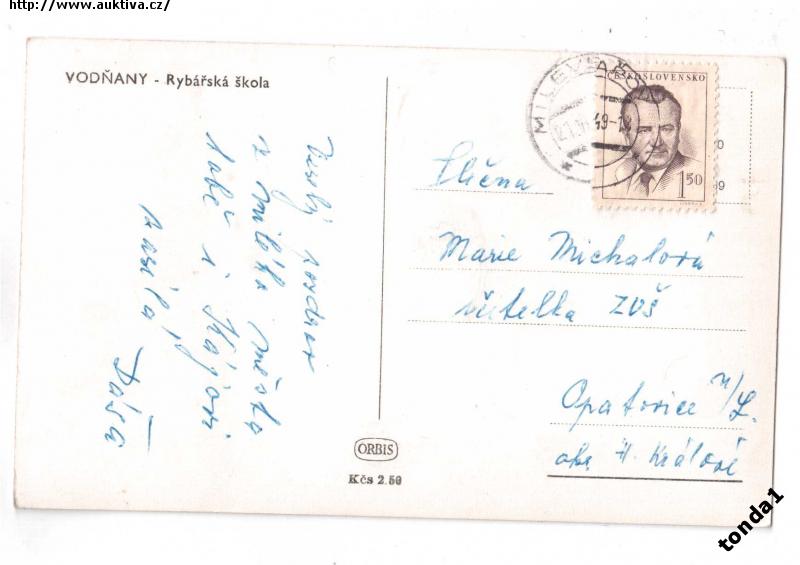 http://www.auktiva.cz/
VODŇANY - Rybářská škola
Veselý pozdrav
z milého města
Tobě i Kájovi
zasílá
Dáša
ORBIS
Kčs 2.50
MILEVSKO
49-1
ČESKOSLOVENSKO
1 50
Slečna
Marie Michalová
učitelka ZOŠ
Opatovice n/L.
okr. H. Králové
tonda1